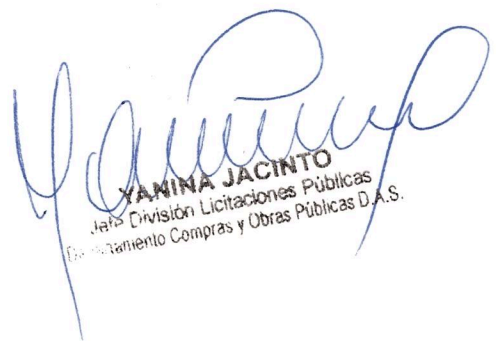 YANINA JACINTO
División Licitaciones Públicas
Compras y Obras Públicas D.A.S.